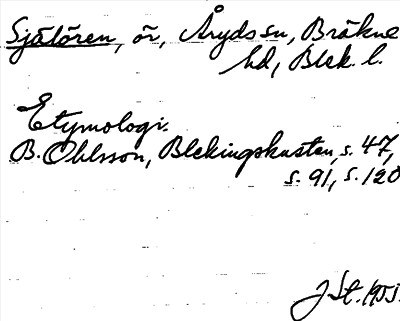 Sjätören, ör, Åryds sn, Bräkne
hd, Blek. l.
Etymologi.
B. Ohlsson, Blekingskusten, s. 47,
s. 91, s. 120
J St. 1955.